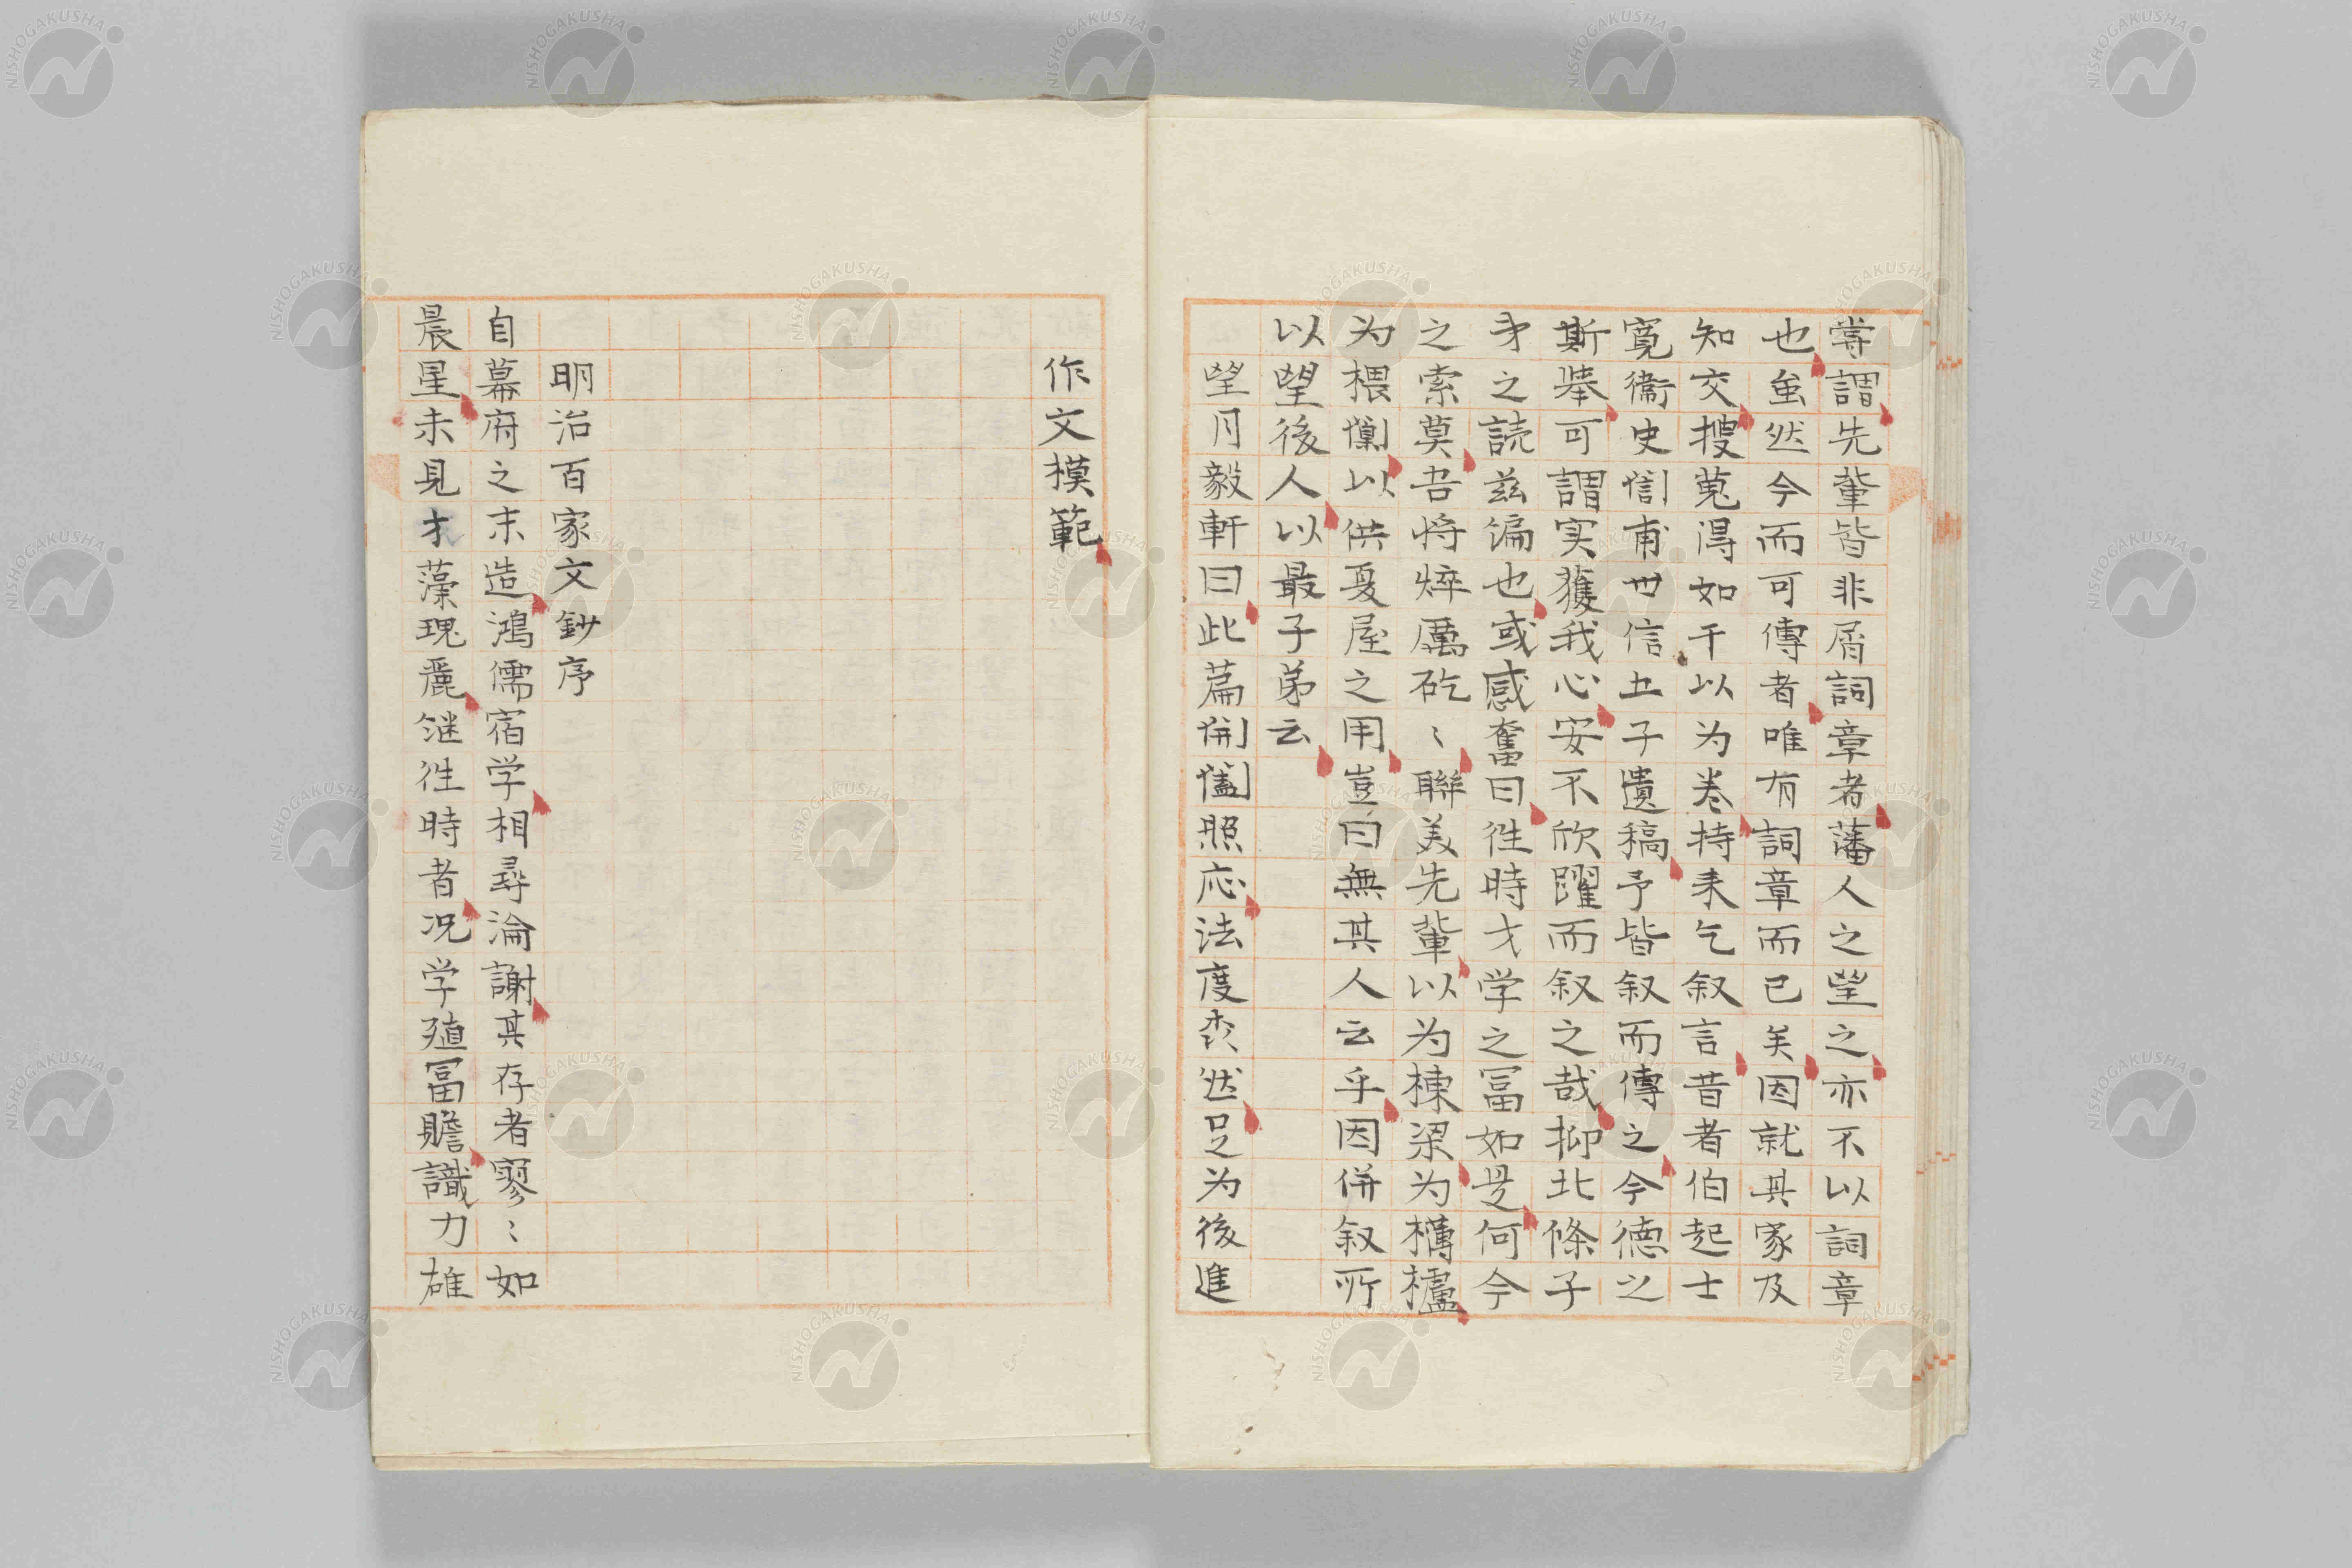 嘗謂先輩皆非屑詞章者藩人之望之亦不以詞章
也虽然今而可傳者唯有詞章而已矣因就其家及
知交捜蒐得如干以为巻持来乞叙言昔者伯起士
寛衞史訚甫世信土子遺稿予皆叙而傳之今徳之
斯挙可謂実獲我心安不欣躍而叙之哉抑北條子
弟之読茲編也或感奮曰徃時才学之冨如是何今
之索莫吾将焠厲矻〻聯美先輩以为棟梁为欂櫨
为椳闑以供夏屋之用豈曰無其人云乎因併叙所
以望後人以最子弟云
望月毅軒曰此篇開闔照応法度森然足为後進
作文模範
明治百家文鈔序
自幕府之末造鴻儒宿学相尋淪謝其存者寥〻如
晨星未見才藻瑰麗继徃時者况学殖冨贍識力雄
NISHOGAKUSHA